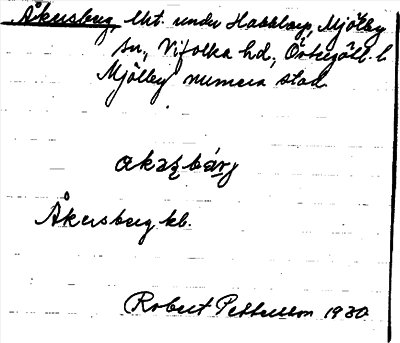 Åkersberg, lht. under Hobblarp, Mjölby
sn., Vifolka hd, Östergötl. l.
Mjölby numera stad
Åkersberg kb.
Robert Pettersson 1930